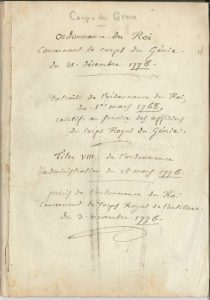 Corps du Génie
Ordonnance du Roi
Concernant le corps du Génie.
du 31. décembre 1776
Extraits de l'ordonnance du Roi,
du 1er mars 1768,
relatif au service des officiers
du corps Royal du Génie.
Titre VIII de l'ordonnance
d'administration du 25 mars 1776
précis de l'ordonnance du Roi
Concernant le corps Royal de l'artillerie
du 3. novembre 1776